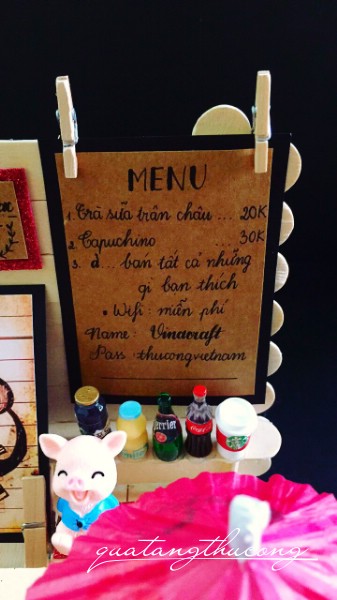 MENU
1. Trà sữa trân châu ... 20K
2. Capuchino ... 30K
3. ... bán tất cả những
gì bạn thích
• Wifi : miễn phí
Name : Vinacraft
Pass : thucongvietnam
Perrier
quatangthucong